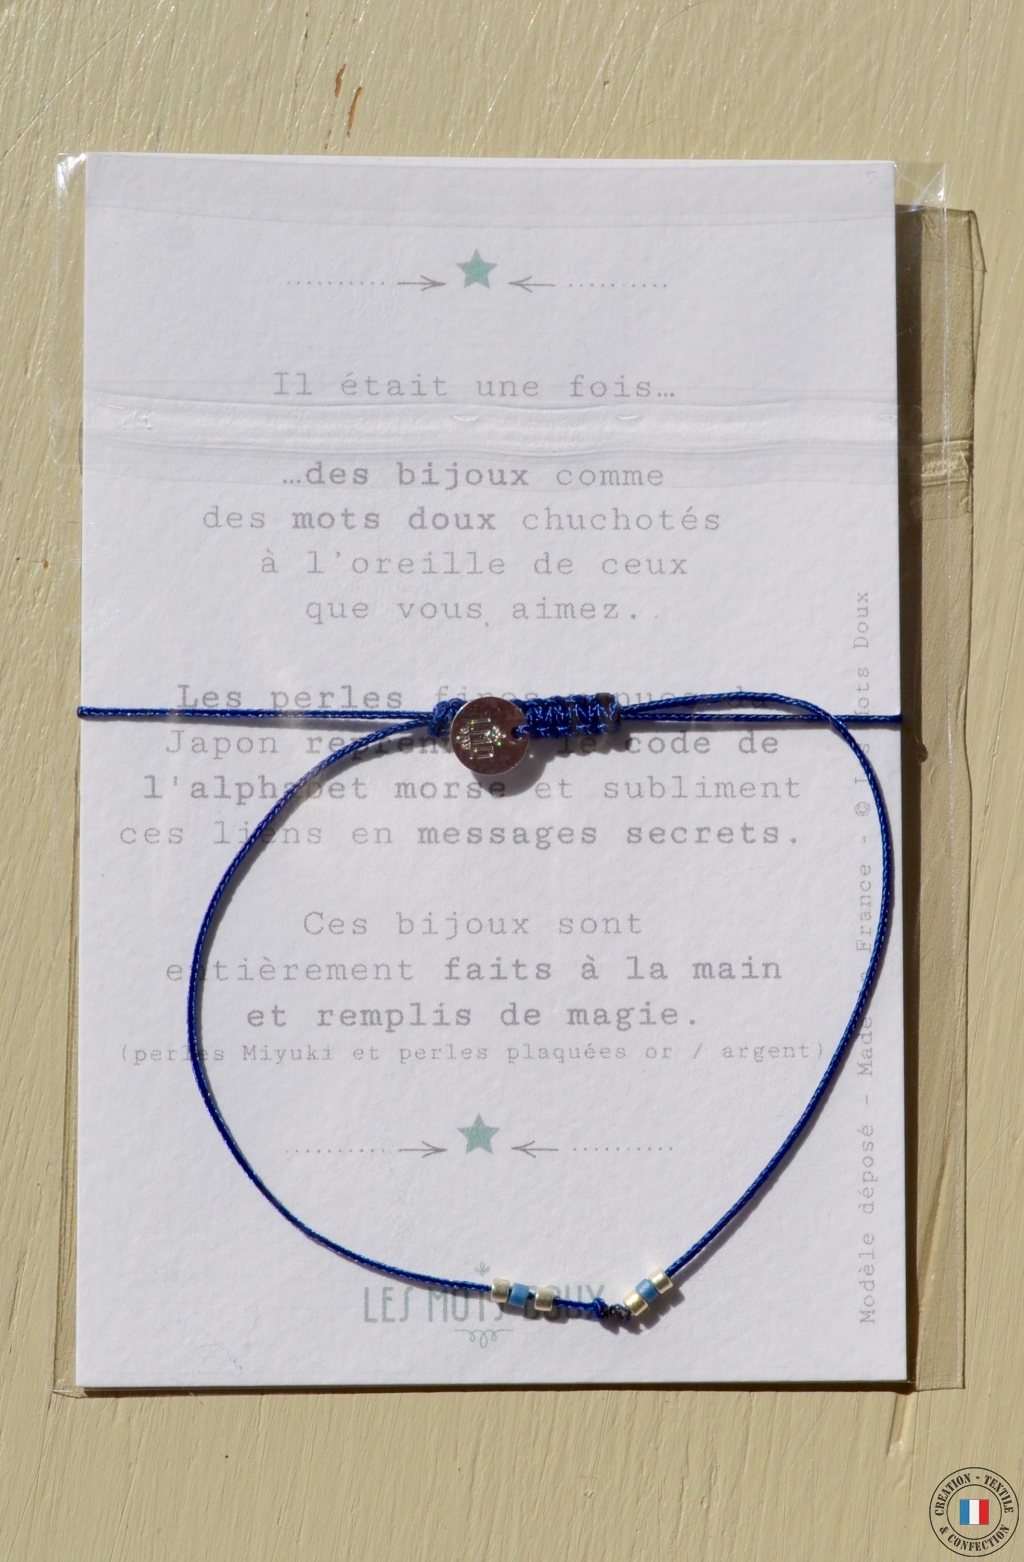 Il était une fois…
…des bijoux comme
des mots doux chuchotés
à l'oreille de ceux
que vous aimez.
Les perles fines venues du
Japon reprennent le code de
l'alphabet morse et subliment
ces liens en messages secrets.
Ces bijoux sont
entièrement faits à la main
et remplis de magie.
(perles Miyuki et perles plaquées or / argent)
LES MOTS DOUX
Modèle déposé - Made in France - © Les Mots Doux
CREATION - TEXTILE
& CONFECTION